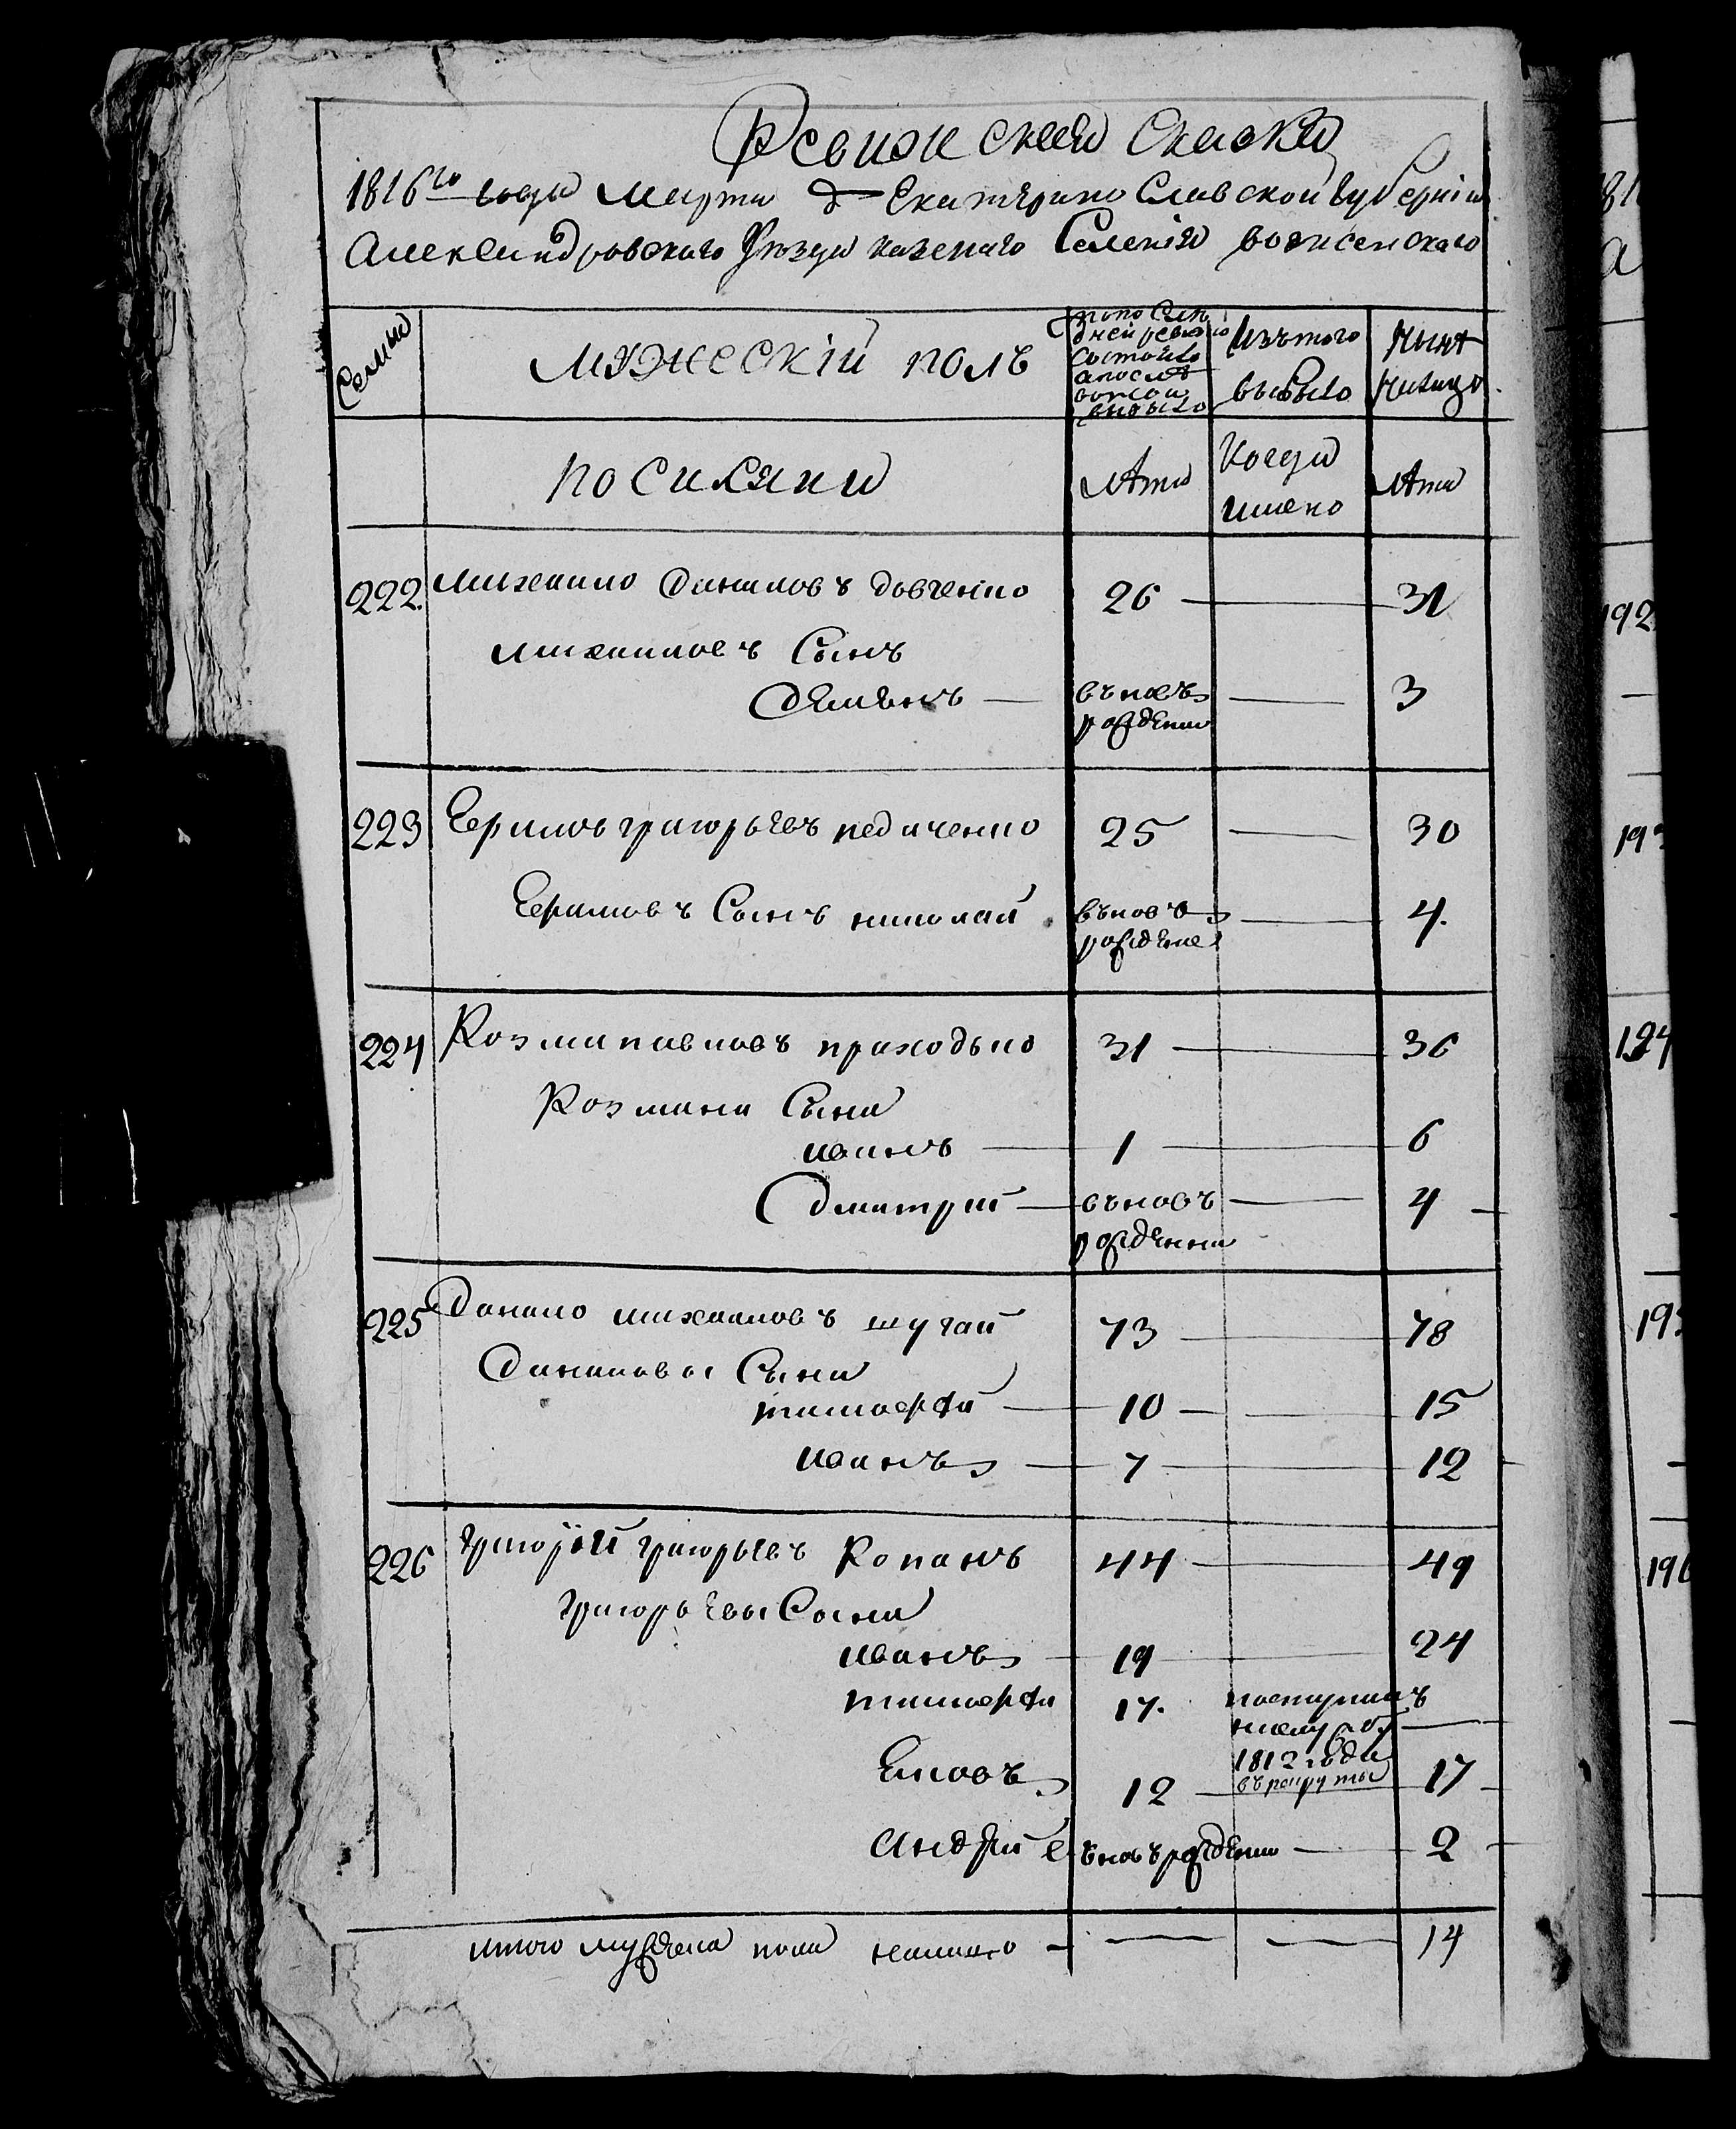 Ревижская Скаска
1816го года марта д Екатерино Славской губернии
Александровского уезда казенаго Селения вознесенскаго
Семьи
мужескiй полъ
попослѣ
дней ревизiи
состояло
апослѣ
оной
вновь
Изътого
выбыло
Нынѣ
налицо
поселяни
лѣта
Когда
имено
лѣта
222. михаило даниловъ довгенко 26 — 31
михаиловъ Сынъ
Демянъ — въновъ — 3
рожденни
223 Ефимъ григорьевъ педиченко 25 — 30
Ефимовъ Сынъ николай въновъ — 4.
рождене
224 Козма павловъ приходько 31 — 36
Козмини Сыни
иванъ — 1 — 6
дмитрий — въновъ — 4
рожденни
225 Данило михаиловъ шугай 73 — 78
Даниловы Сыни
тимофей — 10 — 15
иванъ — 7 — 12
226 григорiй григорьевъ Копанъ 44 — 49
григорьевы Сыни
иванъ 19 — 24
тимофей 17. поступилъ
1812 года
въ рекруты
Ековъ 12 — 17
Андрей въновърождени — 2
итого мужеска пола налицо — — — 14
181
а
192
193
194
195
196